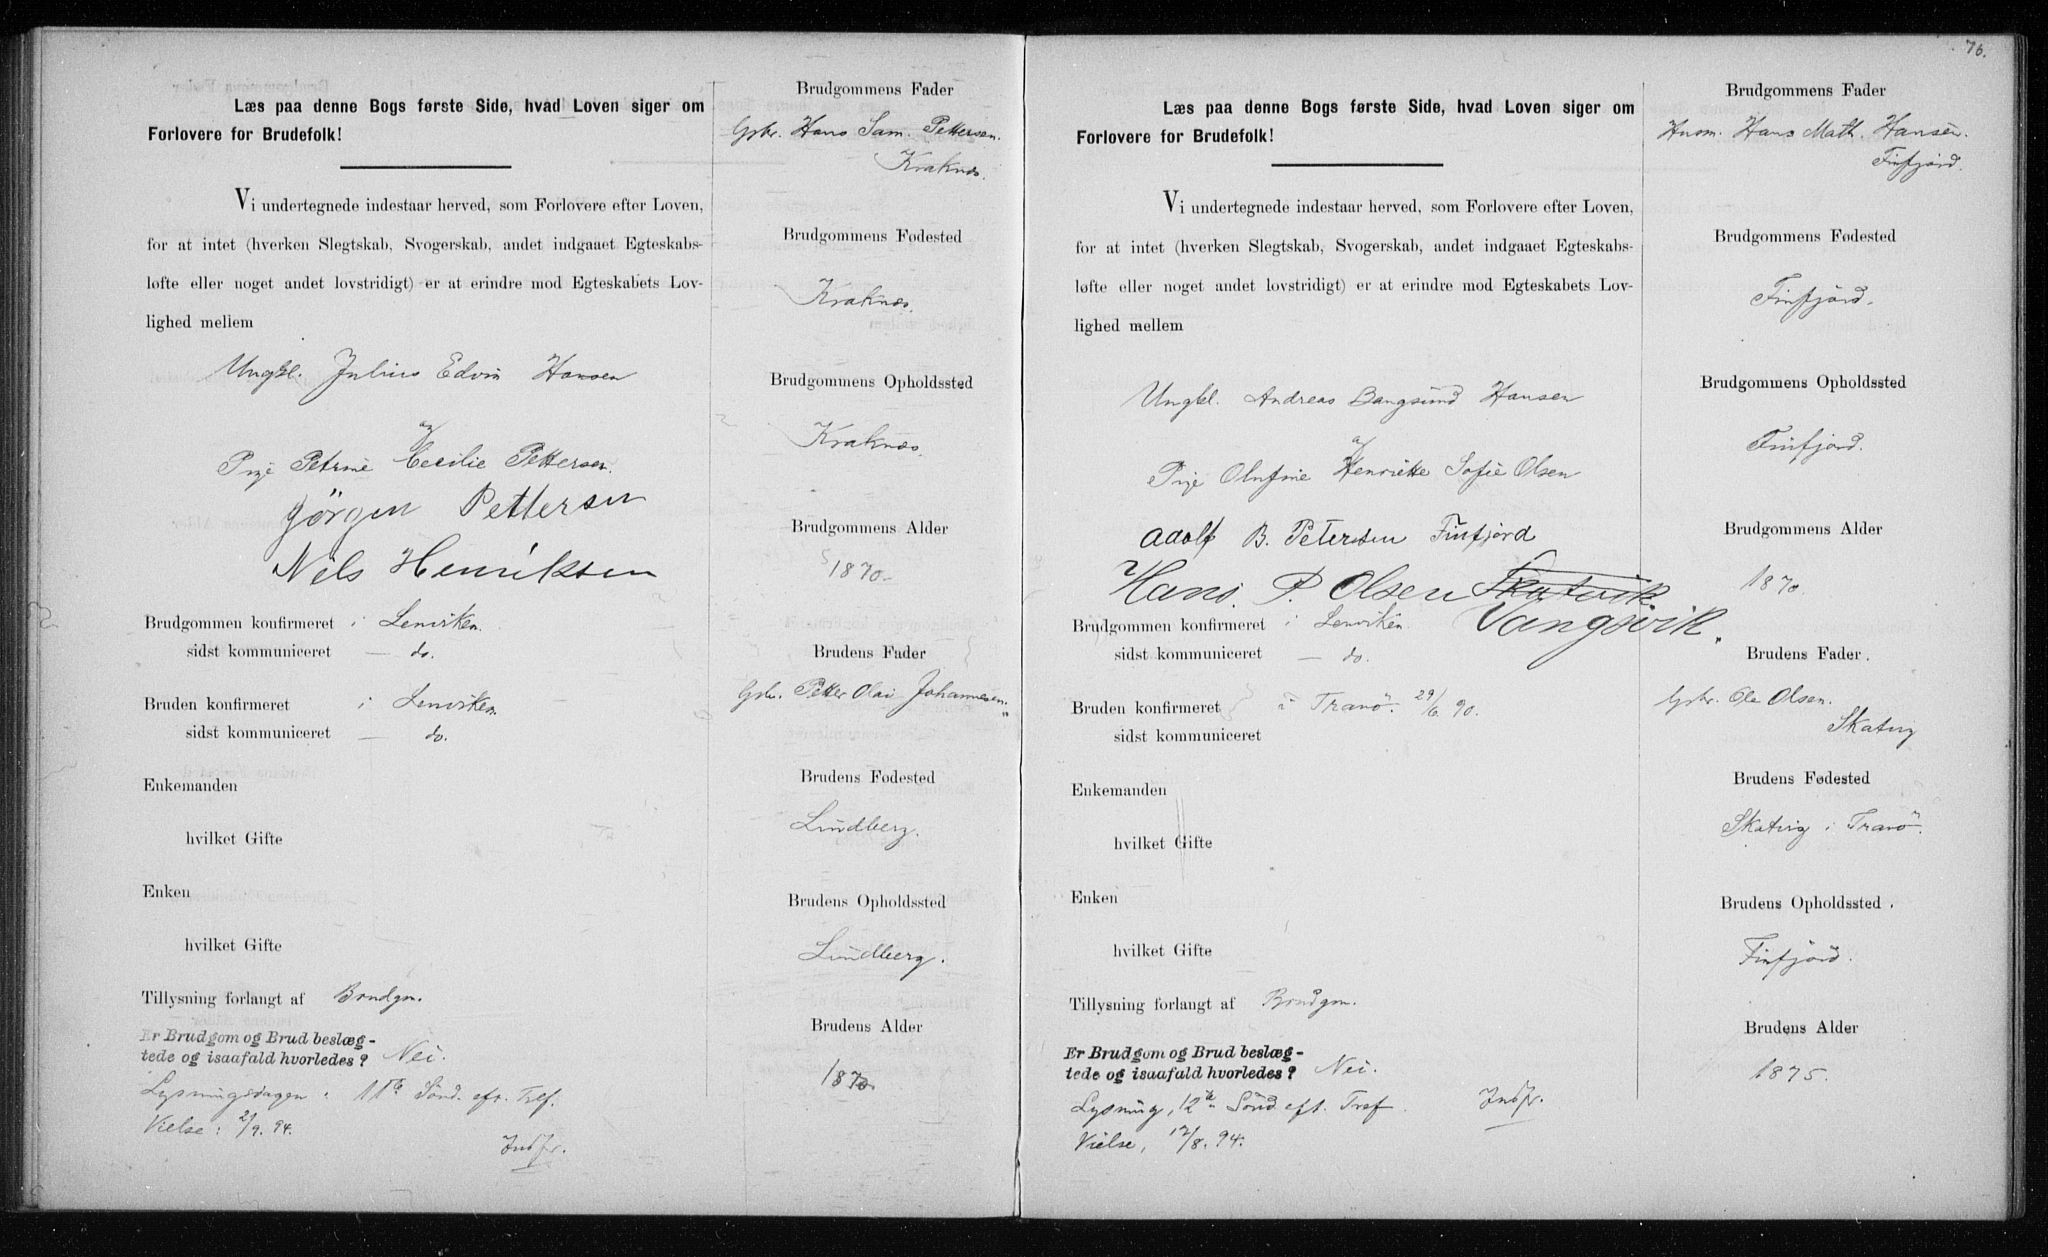 Læs paa denne Bogs første Side, hvad Loven siger om
Forlovere for Brudefolk!
Vi undertegnede indestaar herved, som Forlovere efter Loven,
for at intet (hverken Slegtskab, Svogerskab, andet indgaaet Egteskabs-
løfte eller noget andet lovstridigt) er at erindre mod Egteskabets Lov-
lighed mellem
Ungkl. Julius Edvin Hansen
og
Pige Petrine Cecilie Pettersen.
Jørgen Pettersen
Nils Henriksen
Brudgommen konfirmeret i Lenviken.
sidst kommuniceret — do.
Bruden konfirmeret i Lenviken.
sidst kommuniceret — do.
Enkemanden
hvilket Gifte
Enken
hvilket Gifte
Tillysning forlangt af Brudgm.
Er Brudgom og Brud beslæg-
tede og isaafald hvorledes? Nei.
Lysningsdagen: 11te Sönd. eft. Tref.
Vielse: 2/9. 94.
Indfr.
Brudgommens Fader
Gbr. Hans Sam. Pettersen.
Kraknæs.
Brudgommens Fødested
Kraknæs.
Brudgommens Opholdssted
Kraknæs.
Brudgommens Alder
1870.
Brudens Fader
Gbr. Petter Olai Johannesen.
Brudens Fødested
Lundberg.
Brudens Opholdssted
Lundberg.
Brudens Alder
1870.
76.
Læs paa denne Bogs første Side, hvad Loven siger om
Forlovere for Brudefolk!
Vi undertegnede indestaar herved, som Forlovere efter Loven,
for at intet (hverken Slegtskab, Svogerskab, andet indgaaet Egteskabs-
løfte eller noget andet lovstridigt) er at erindre mod Egteskabets Lov-
lighed mellem
Ungkl. Andreas Bangsund Hansen
og
Pige Olufine Henriette Sofie Olsen
Adolf B. Petersen Finfjord
Hans. P. Olsen Skatvik
Vangsvik.
Brudgommen konfirmeret i Lenviken.
sidst kommuniceret — do.
Bruden konfirmeret i Tranö. 29/6 90.
sidst kommuniceret
Enkemanden
hvilket Gifte
Enken
hvilket Gifte
Tillysning forlangt af Brudgm.
Er Brudgom og Brud beslæg-
tede og isaafald hvorledes? Nei.
Lysning, 12te Sönd eft. Tref.
Indfr.
Vielse, 12/8. 94.
Brudgommens Fader
Husm. Hans Math. Hansen.
Finfjord.
Brudgommens Fødested
Finfjord.
Brudgommens Opholdssted
Finfjord.
Brudgommens Alder
1870.
Brudens Fader.
Gbr. Ole Olsen.
Skatvig
Brudens Fødested
Skatvig i Tranö.
Brudens Opholdssted.
Finfjord.
Brudens Alder
1875.